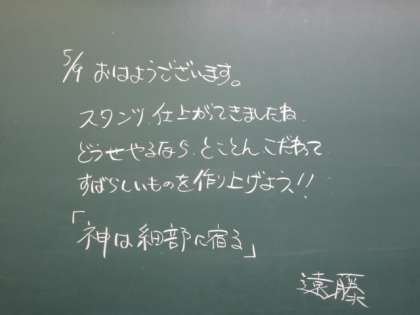 5/9 おはようございます。
スタンツ、仕上がってきましたね。
どうせやるなら、とことんこだわって
すばらしいものを作り上げよう!!
「神は細部に宿る」
遠藤